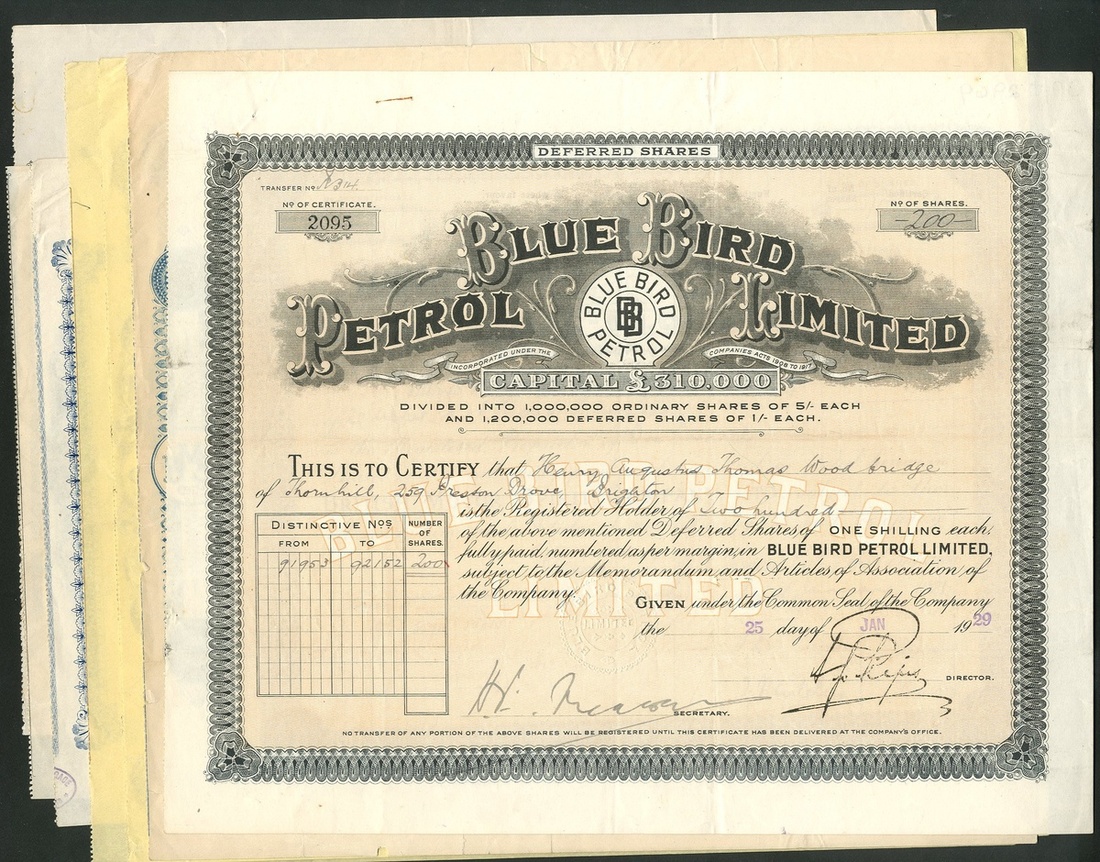 DEFERRED SHARES
TRANSFER No. 314.
No. OF CERTIFICATE.
2095
No. OF SHARES.
-200-
BLUE BIRD
PETROL LIMITED
BLUE BIRD
BB
PETROL
INCORPORATED UNDER THE COMPANIES ACTS 1908 TO 1917
CAPITAL £310,000
DIVIDED INTO 1,000,000 ORDINARY SHARES OF 5/- EACH
AND 1,200,000 DEFERRED SHARES OF 1/- EACH.
THIS IS TO CERTIFY that Henry Augustus Thomas Woodbridge
of Thornhill, 259 Preston Drove, Brighton
is the Registered Holder of Two hundred
of the above mentioned Deferred Shares of ONE SHILLING each,
fully paid, numbered as per margin, in BLUE BIRD PETROL LIMITED,
subject to the Memorandum and Articles of Association of
the Company.
DISTINCTIVE Nos
NUMBER OF SHARES.
FROM TO
91953 92152 200
BLUE BIRD PETROL
LIMITED
GIVEN under the Common Seal of the Company
the 25 day of JAN 1929
DIRECTOR.
SECRETARY.
NO TRANSFER OF ANY PORTION OF THE ABOVE SHARES WILL BE REGISTERED UNTIL THIS CERTIFICATE HAS BEEN DELIVERED AT THE COMPANY'S OFFICE.